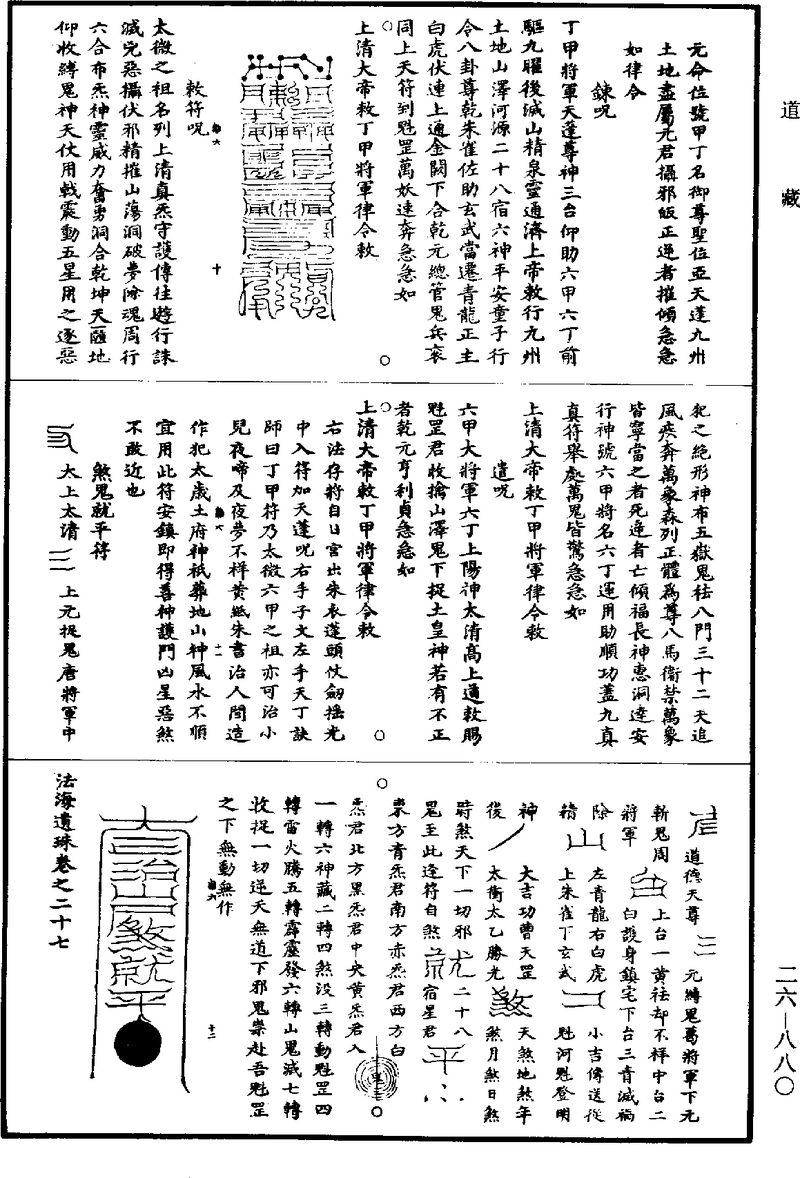 道藏
元命位號甲丁名御尊聖位亞天蓬九州
土地盡屬元君攝邪皈正逆者摧傾急急
如律令
鍊呪
丁甲將軍天蓬尊神三台仰助六甲六丁前
驅九曜後滅山精泉靈通濟上帝敕行九州
土地山澤河源二十八宿六神平安童子行
令八卦尊乾朱雀佐助玄武當邊青龍正主
白虎伏連上通金闕下合乾元總管鬼兵衮
同上天符到魁罡萬妖速奔急急如
上清大帝敕丁甲將軍律令敕
敕符呪
太微之祖名列上清真炁守護傳往遊行誅
滅兇惡攝伏邪精摧山蕩洞破夢除魂周行
六合布炁神靈威力奮勇洞合乾坤天羅地
仰收縛鬼神天仗用戟震動五星用之逐惡
犯之絶形神布五嶽鬼祛八門三十二天追
風疾奔萬象森列正體為尊八馬衛禁萬象
皆寧當之者死逆者亡傾福長神惠洞達安
行神號六甲將名六丁運用助順功蓋九真
真符舉處萬鬼皆驚急急如
上清大帝敕丁甲將軍律令敕
遣呪
六甲大將軍六丁上陽神太清高上道敕賜
魁罡君收擒山澤鬼下捉土皇神若有不正
者乾元亨利貞急急如
上清大帝敕丁甲將軍律令敕
右法存將自日宮出朱衣蓬頭仗劍摇光
中入符加天蓬呪右手子文左手天丁訣
師曰丁甲符乃太微六甲之祖亦可治小
兒夜啼及夜夢不祥黄紙朱書治人間造
作犯太歲土府神祇葬地山神風水不順
宜用此符安鎮即得善神護門凶星惡煞
不敢近也
煞鬼就平符
太上太清 上元捉鬼唐將軍中
道德天尊 元縛鬼葛將軍下元
斬鬼周 上台一黄祛却不祥中台二
將軍 白護身鎮宅下台三青滅禍
除 左青龍右白虎 小吉傳送從
精 上朱雀下玄武 魁河魁登明
神 大吉功曹天罡 天煞地煞年
後 太衝太乙勝光 煞月煞日煞
時煞天下一切邪 二十八
鬼至此逢符自煞 宿星君
東方青炁君南方赤炁君西方白
炁君北方黑炁君中央黄炁君入
一轉六神藏二轉四煞没三轉動魁罡四
轉雷火騰五轉霹靂發六轉山鬼滅七轉
收捉一切逆天無道下邪鬼祟赴吾魁罡
之下無動無作
法海遺珠卷之二十七
二六—八八〇